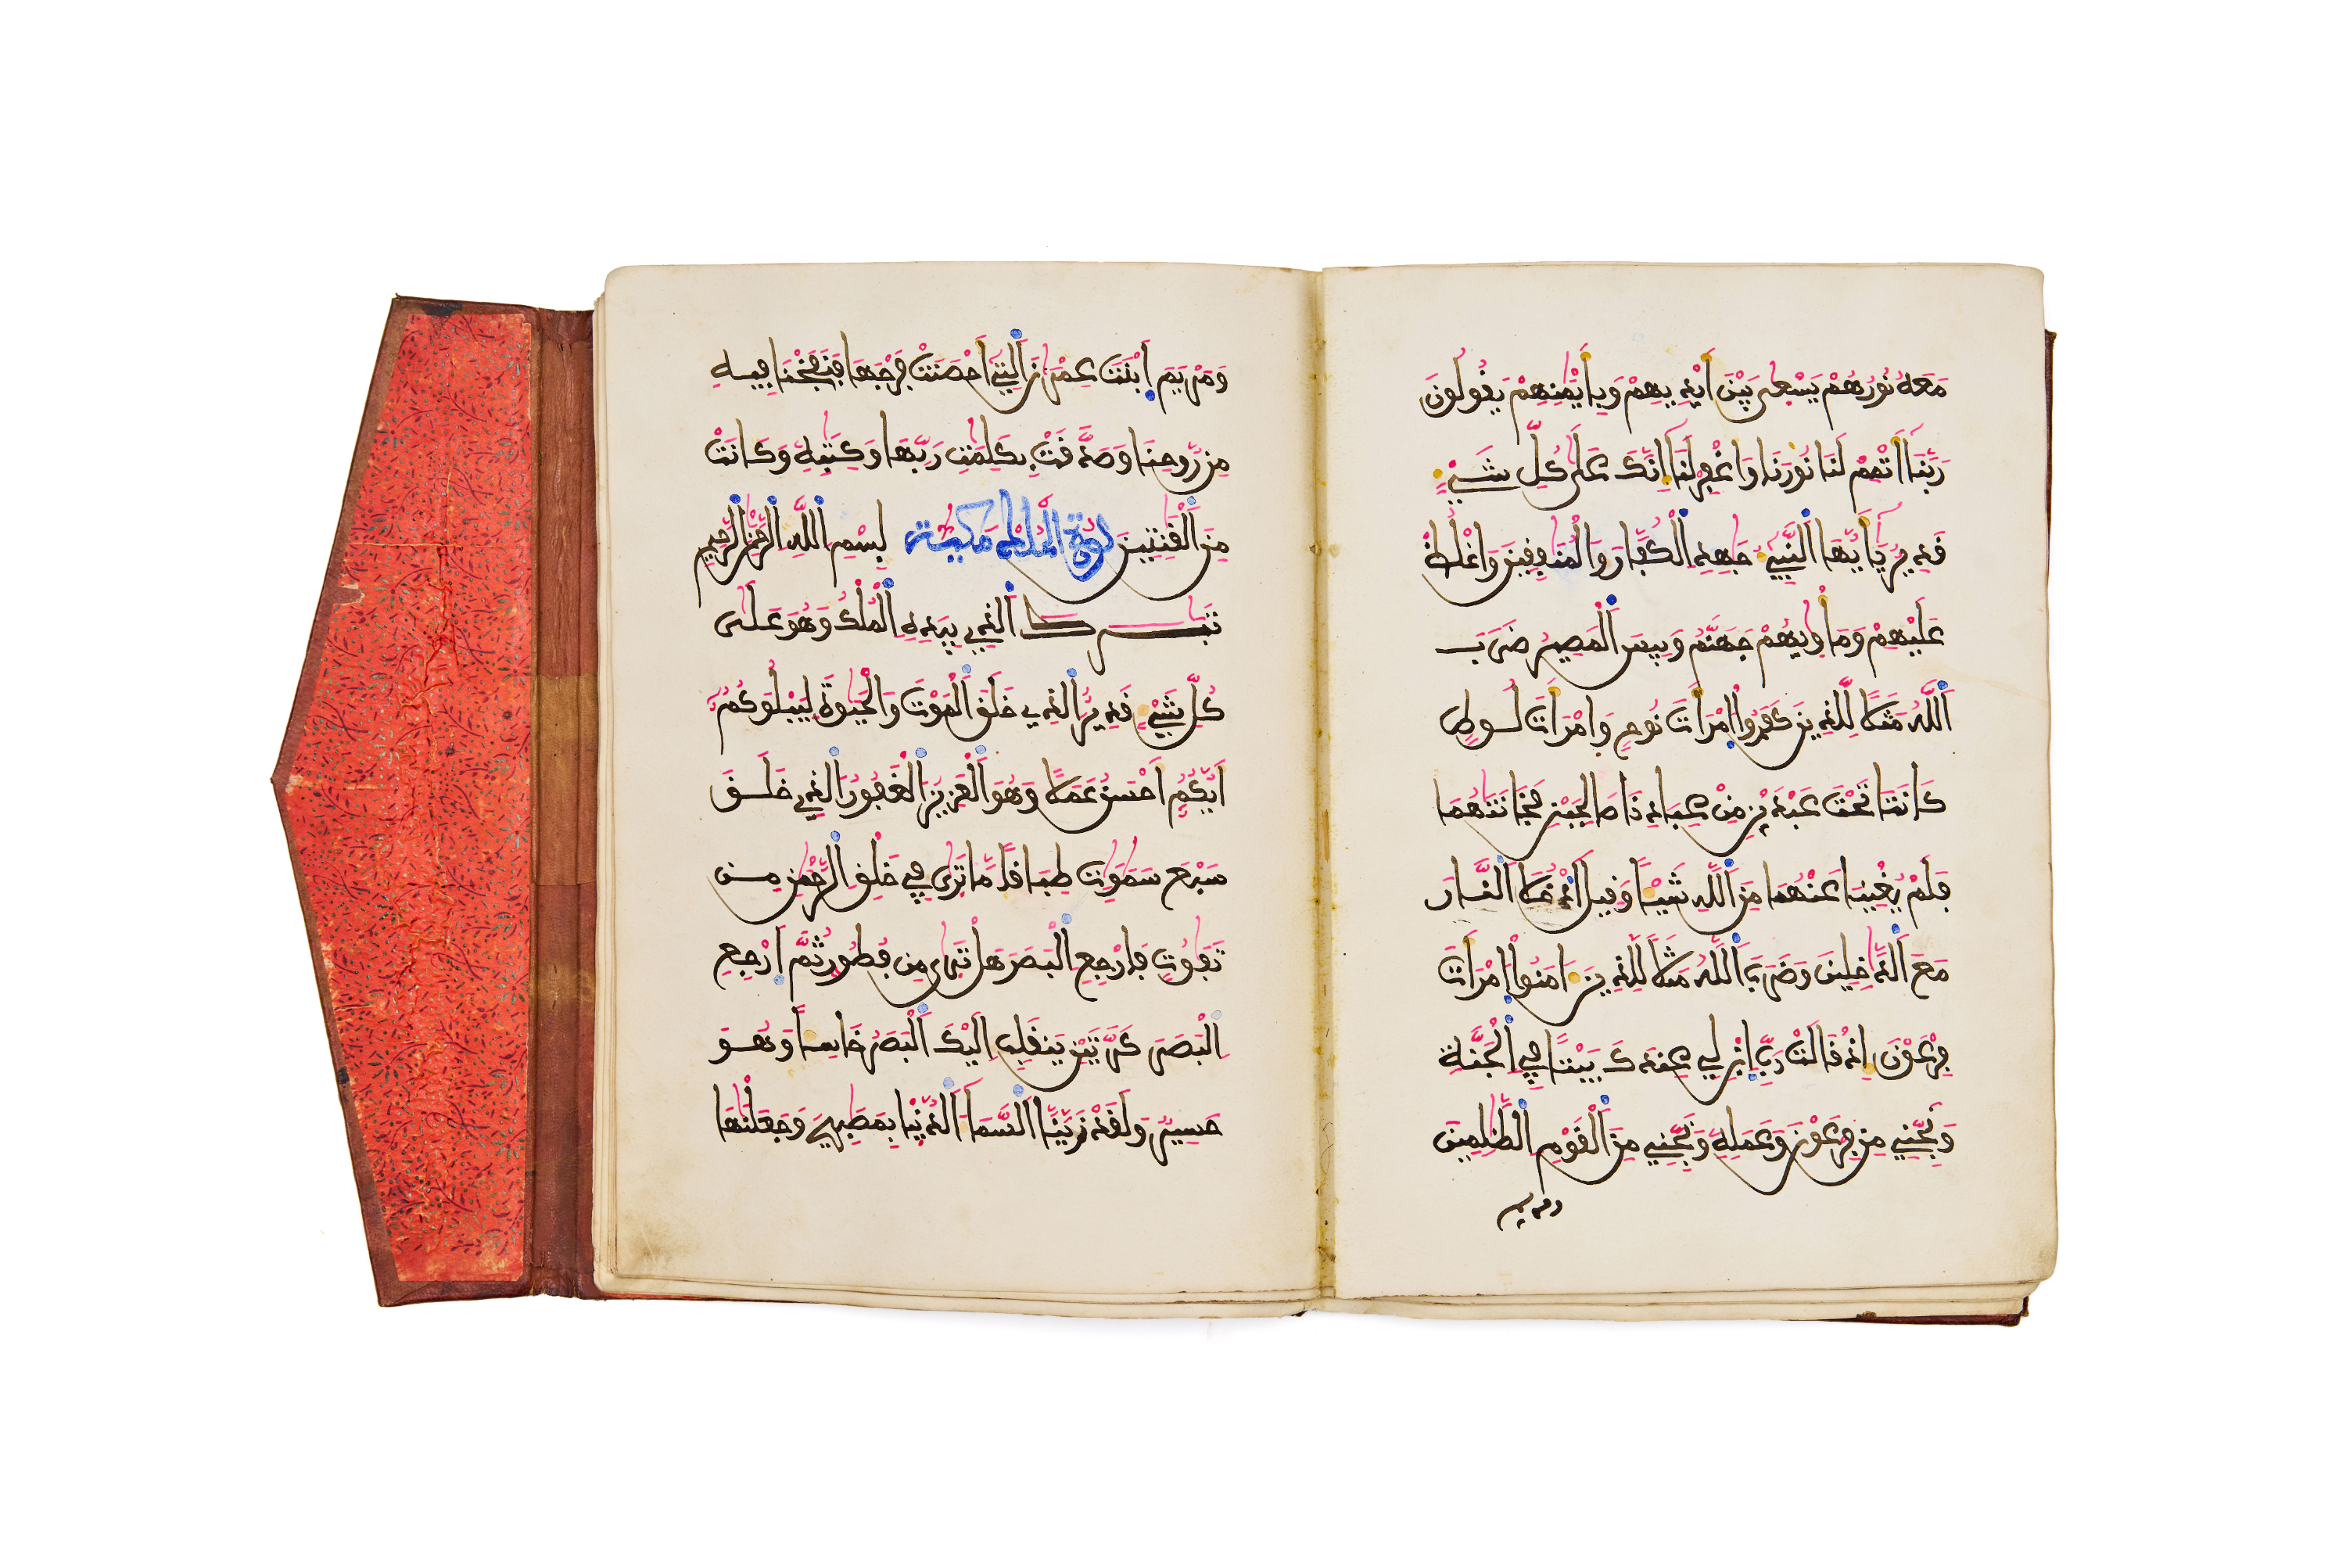 مَعَهُ نُورُهُمْ يَسْعَىٰ بَيْنَ أَيْدِيهِمْ وَبِأَيْمَٰنِهِمْ يَقُولُونَ
رَبَّنَا أَتْمِمْ لَنَا نُورَنَا وَاغْفِرْ لَنَا إِنَّكَ عَلَىٰ كُلِّ شَيْءٍ
قَدِيرٌ يَٰأَيُّهَا النَّبِيءُ جَٰهِدِ الْكُفَّارَ وَالْمُنَٰفِقِينَ وَاغْلُظْ
عَلَيْهِمْ وَمَأْوَىٰهُمْ جَهَنَّمُ وَبِيسَ الْمَصِيرُ ضَرَبَ
اللَّهُ مَثَلًا لِلَّذِينَ كَفَرُوا امْرَأَتَ نُوحٍ وَامْرَأَتَ لُوطٍ
كَانَتَا تَحْتَ عَبْدَيْنِ مِنْ عِبَادِنَا صَٰلِحَيْنِ فَخَانَتَٰهُمَا
فَلَمْ يُغْنِيَا عَنْهُمَا مِنَ اللَّهِ شَيْـًٔا وَقِيلَ ادْخُلَا النَّارَ
مَعَ الدَّٰخِلِينَ وَضَرَبَ اللَّهُ مَثَلًا لِلَّذِينَ ءَامَنُوا امْرَأَتَ
فِرْعَوْنَ إِذْ قَالَتْ رَبِّ ابْنِ لِي عِندَكَ بَيْتًا فِي الْجَنَّةِ
وَنَجِّنِي مِن فِرْعَوْنَ وَعَمَلِهِ وَنَجِّنِي مِنَ الْقَوْمِ الظَّٰلِمِينَ
ومريم
وَمَرْيَمَ ابْنَتَ عِمْرَٰنَ الَّتِي أَحْصَنَتْ فَرْجَهَا فَنَفَخْنَا فِيهِ
مِن رُّوحِنَا وَصَدَّقَتْ بِكَلِمَٰتِ رَبِّهَا وَكِتَٰبِهِ وَكَانَتْ
مِنَ الْقَٰنِتِينَ سورة الملك مكية بِسْمِ اللَّهِ الرَّحْمَٰنِ الرَّحِيمِ
تَبَٰرَكَ الَّذِي بِيَدِهِ الْمُلْكُ وَهُوَ عَلَىٰ
كُلِّ شَيْءٍ قَدِيرٌ الَّذِي خَلَقَ الْمَوْتَ وَالْحَيَوٰةَ لِيَبْلُوَكُمْ
أَيُّكُمْ أَحْسَنُ عَمَلًا وَهُوَ الْعَزِيزُ الْغَفُورُ الَّذِي خَلَقَ
سَبْعَ سَمَٰوَٰتٍ طِبَاقًا مَّا تَرَىٰ فِي خَلْقِ الرَّحْمَٰنِ مِن
تَفَٰوُتٍ فَارْجِعِ الْبَصَرَ هَلْ تَرَىٰ مِن فُطُورٍ ثُمَّ ارْجِعِ
الْبَصَرَ كَرَّتَيْنِ يَنقَلِبْ إِلَيْكَ الْبَصَرُ خَاسِئًا وَهُوَ
حَسِيرٌ وَلَقَدْ زَيَّنَّا السَّمَاءَ الدُّنْيَا بِمَصَٰبِيحَ وَجَعَلْنَٰهَا